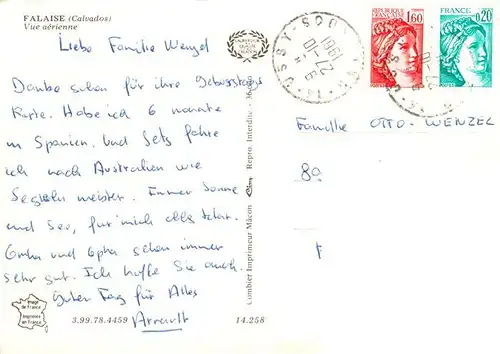 FALAISE (Calvados)
Vue aérienne
Liebe Familie Wenzel
Danke schon für ihre Geburgstags
Karte. Habe ich 6 monate
in Spanien. Und Setz fahre
ich nach Australien wie
Segeln meister. Immer Sonne
und See, für mich alles klar.
Omha und Opha sehen immer
sehr gut. Ich hoffe Sie auch.
Guten Tag für Alles
Arrault
image de France
Imprimée en France
3.99.78.4459
14.258
Combier Imprimeur Mâcon
Repro. Interdite
27-10
1981
REPUBLIQUE FRANÇAISE
1,60
FRANCE
0,20
POSTES
Familie OTTO - WENZEL
80
F